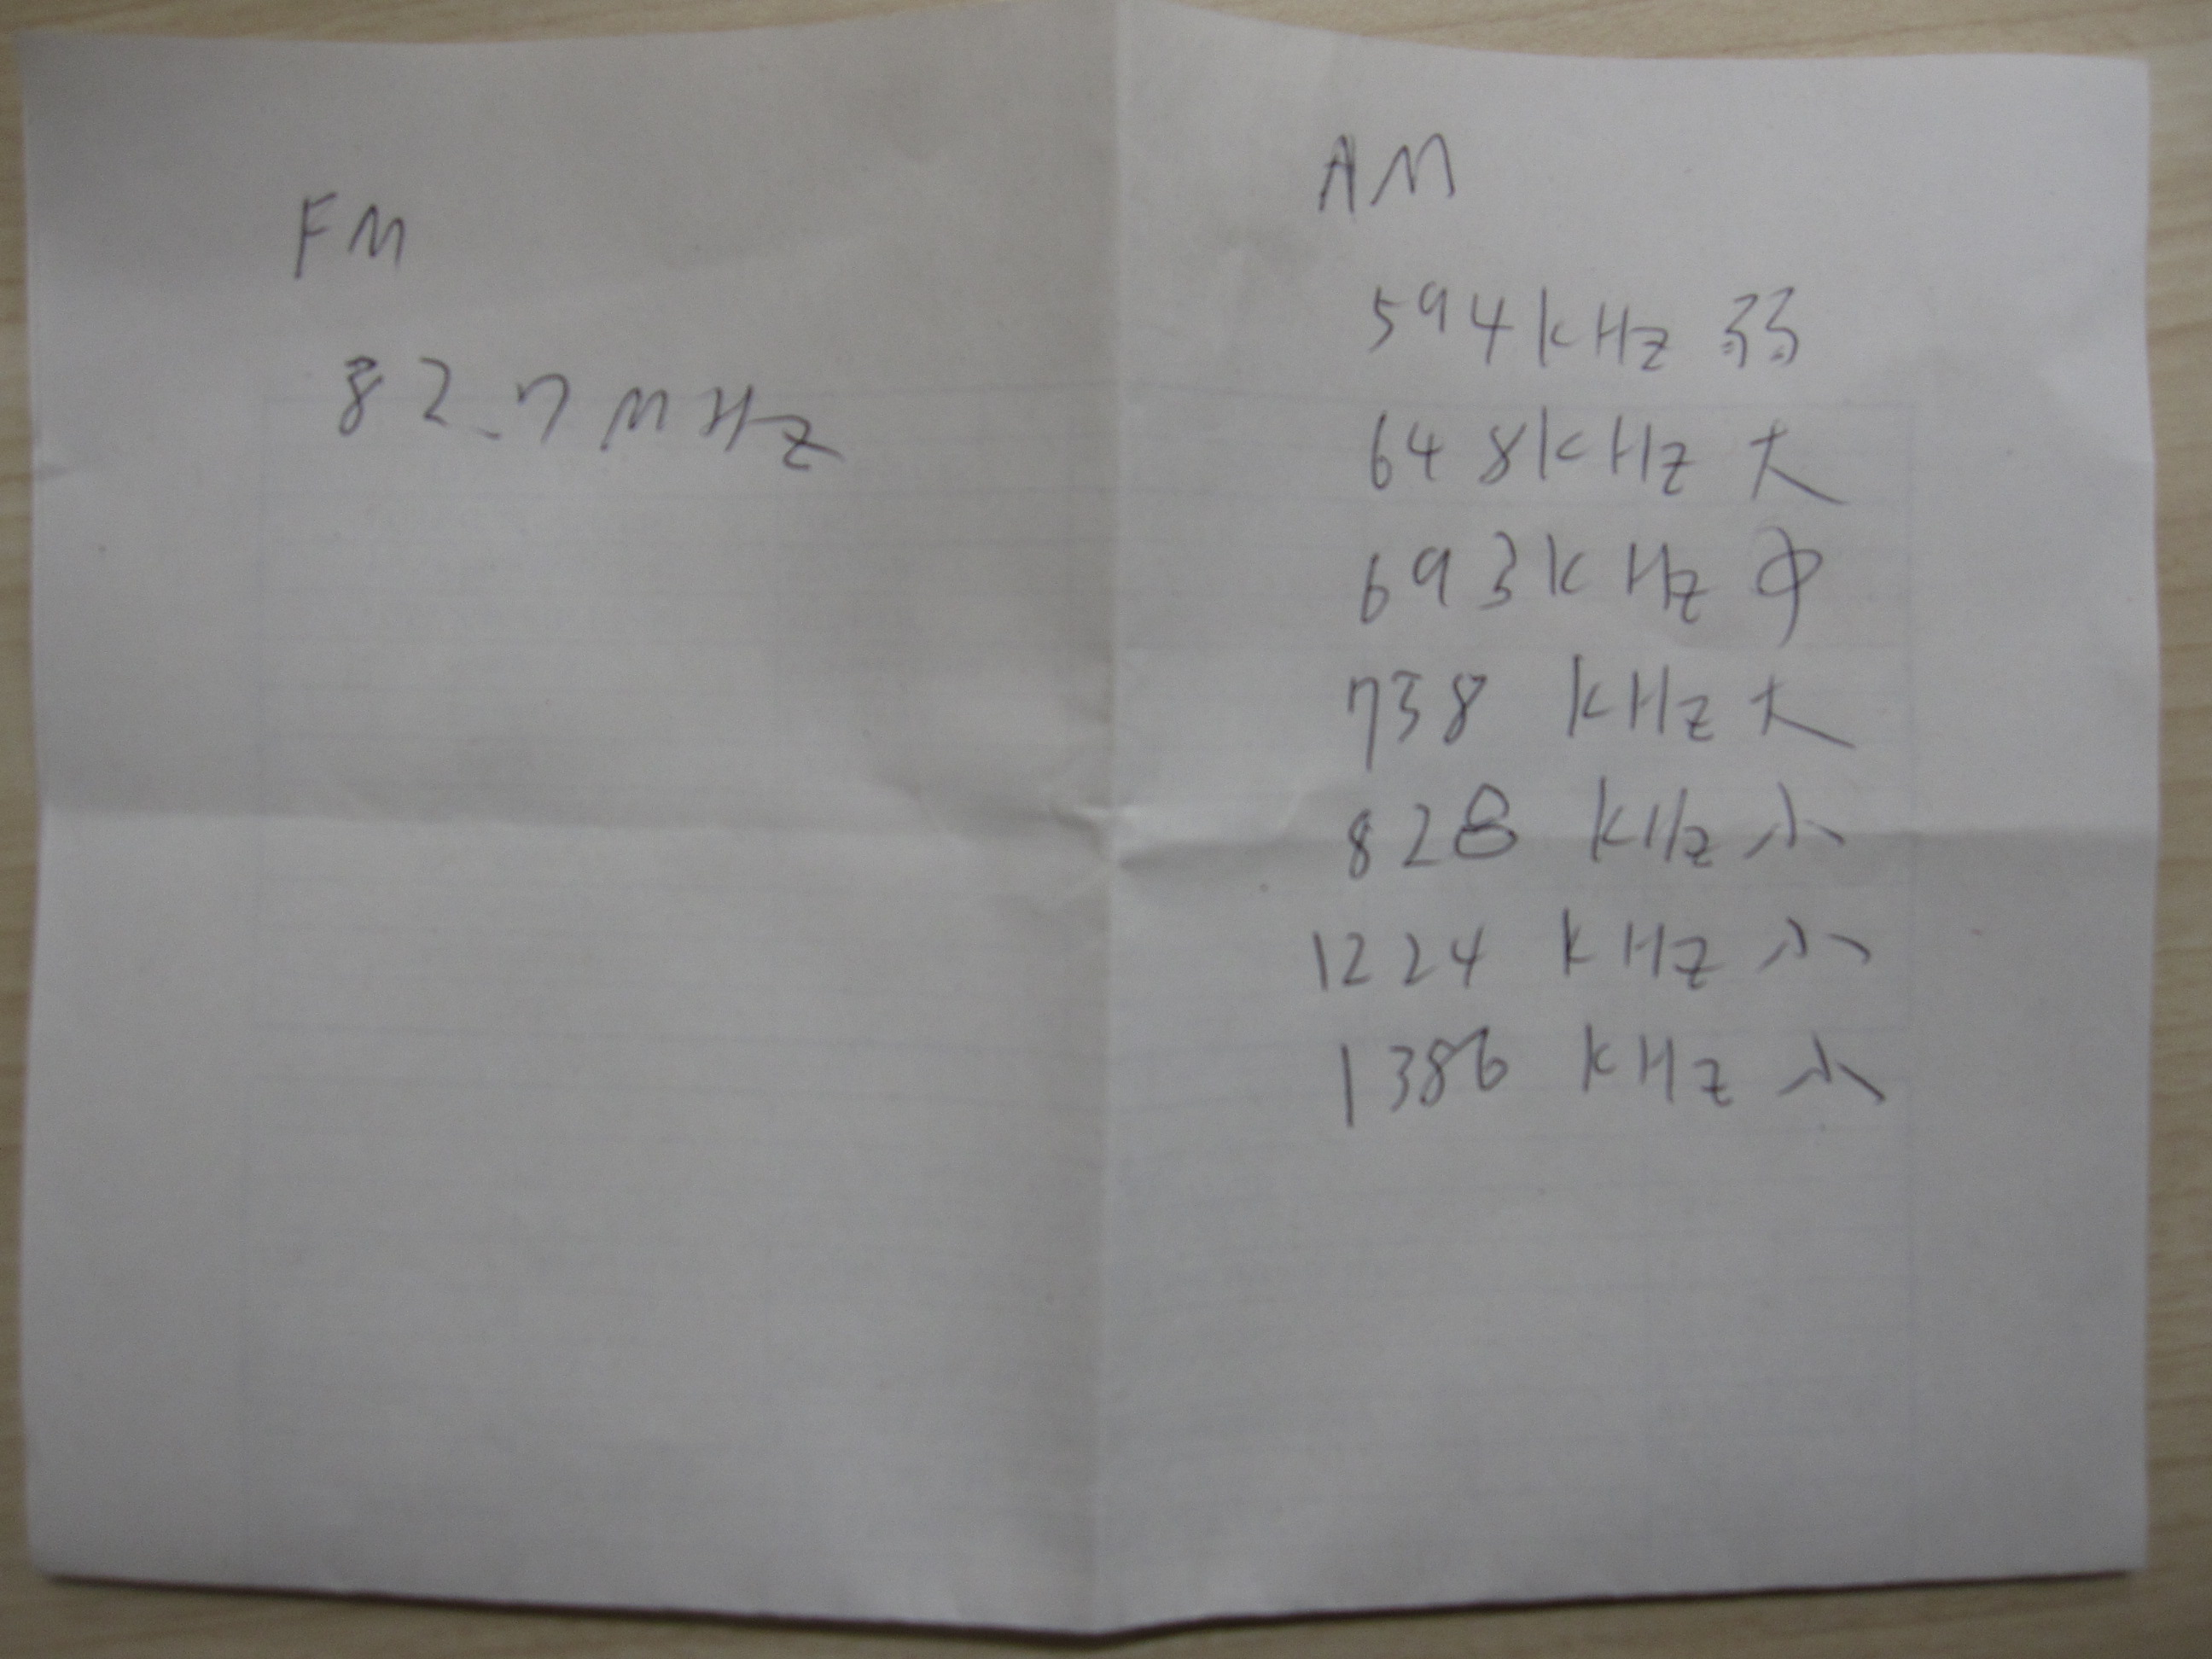 FM
82.7MHz
AM
594kHz 弱
648kHz 大
693kHz 中
738 kHz 大
828 kHz 小
1224 kHz 小
1386 kHz 小